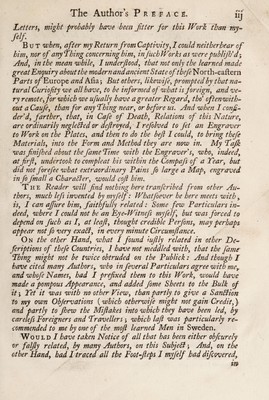 The Author's PREFACE. iij
Letters, might probably have been fitter for this Work than my-
self.
BUT when, after my Return from Captivity, I could neither hear of
him, nor of any Thing concerning him, in such Works as were publish'd;
And, in the mean while, I understood, that not only the learned made
great Enquiry about the modern and ancient State of these North-eastern
Parts of Europe and Asia; But others, likewise, prompted by that na-
tural Curiosity we all have, to be informed of what is foreign, and ve-
ry remote, for which we usually have a greater Regard, tho' often with-
out a Cause, than for any Thing near, or before us. And when I consi-
der'd, farther, that, in Case of Death, Relations of this Nature,
are ordinarily neglected or destroyed, I resolved to set an Engraver
to Work on the Plates, and then to do the best I could, to bring these
Materials, into the Form and Method they are now in. My Task
was finished about the same Time with the Engraver's, who, indeed,
at first, undertook to compleat his within the Compass of a Year, but
did not foresee what extraordinary Pains so large a Map, engraved
in so small a Character, would cost him.
THE Reader will find nothing here transcribed from other Au-
thors, much less invented by myself: Whatsoever he here meets with,
is, I can assure him, faithfully related: Some few Particulars in-
deed, where I could not be an Eye-Witness myself, but was forced to
depend on such as I, at least, thought credible Persons, may perhaps
appear not so very exact, in every minute Circumstance.
On the other Hand, what I found justly related in other De-
scriptions of those Countries, I have not meddled with, that the same
Thing might not be twice obtruded on the Publick: And though I
have cited many Authors, who in several Particulars agree with me,
and whose Names, had I prefixed them to this Work, would have
made a pompous Appearance, and added some Sheets to the Bulk of
it; Yet it was with no other View, than partly to give a Sanction
to my own Observations (which otherwise might not gain Credit,)
and partly to shew the Mistakes into which they have been led, by
careless Foreigners and Travellers; which last was particularly re-
commended to me by one of the most learned Men in Sweden.
WOULD I have taken Notice of all that has been either obscurely
or falsly related, by many Authors, on this Subject; And, on the
other Hand, had I traced all the Foot-steps I myself had discovered,